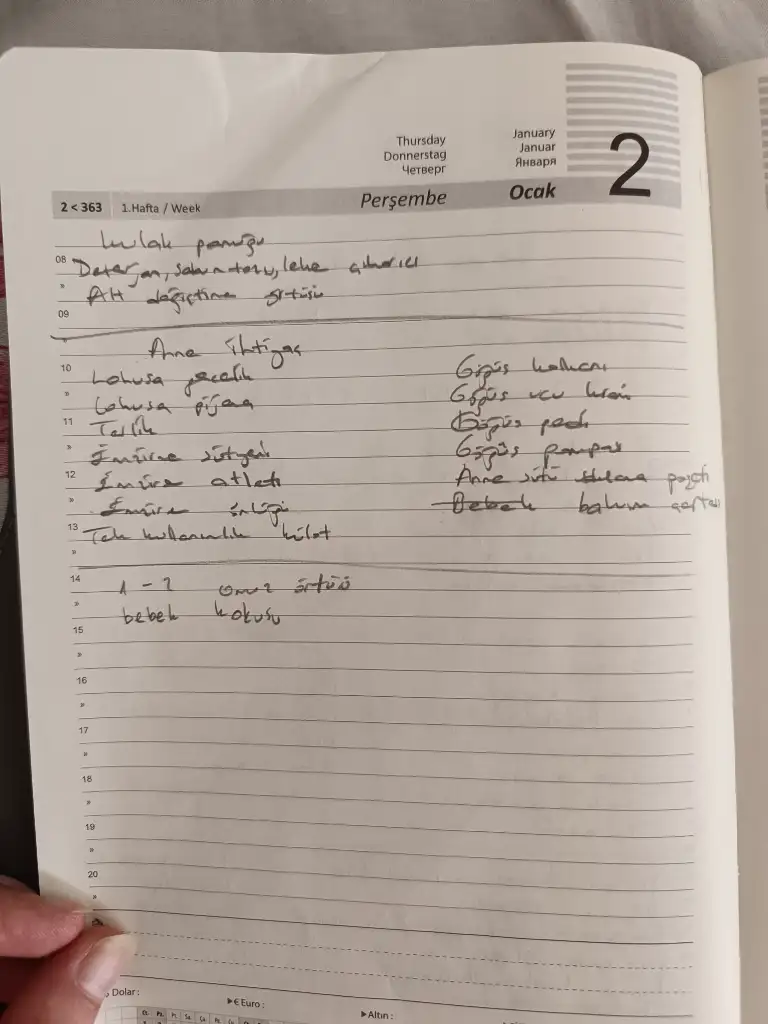 Thursday
Donnerstag
Четверг
January
Januar
Января
2
2 < 363 1.Hafta / Week Perşembe Ocak
kulak pamuğu
08 Deterjan, sabun tozu, leke çıkarıcı
» Alt değiştirme örtüsü
09
»
Anne ihtiyaç
10 Lohusa gecelik
» Lohusa pijama
11 Terlik
» Emzirme sütyeni
12 Emzirme atleti
» Emzirme önlüğü
13 Tek kullanımlık külot
»
Göğüs kalkanı
Göğüs ucu kremi
Göğüs pedi
Göğüs pompası
Anne sütü saklama poşeti
Bebek bakım çantası
14 1 - 2 omuz örtüsü
» bebek kokusu
15
»
16
»
17
»
18
»
19
»
20
»
Dolar :
►€ Euro :
►Altın :